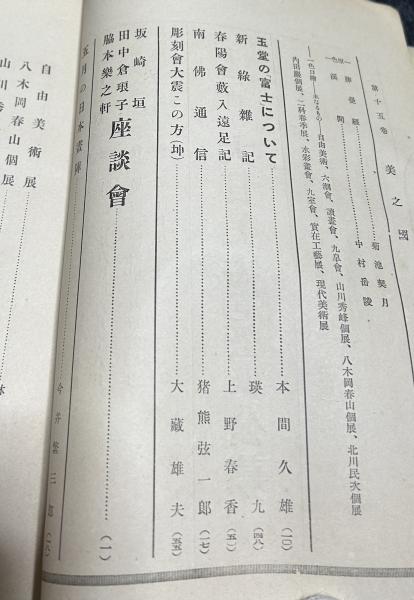 第十五卷　美之國
菊池契月
中村岳陵
一色口繪…主なるもの―自由美術、六潮會、讀畫會、九皐會、山川秀峰個展、八木岡春山個展、北川民次個展
內田巖個展、二科春季展、水彩畫會、九室會、實在工藝展、現代美術展
玉堂の富士について……本間久雄（一〇）
新綠雜記……瑛九（四八）
春陽會藪入遠足記……上野春香（五）
南佛通信……猪熊弦一郎（一七）
彫刻會大震この方（坤）……大藏雄夫（五五）
坂崎坦
田中倉琅子
脇本樂之軒
座談會……（一）
五月の日本畫陣……
自由美術展
八木岡春山個展
山川秀